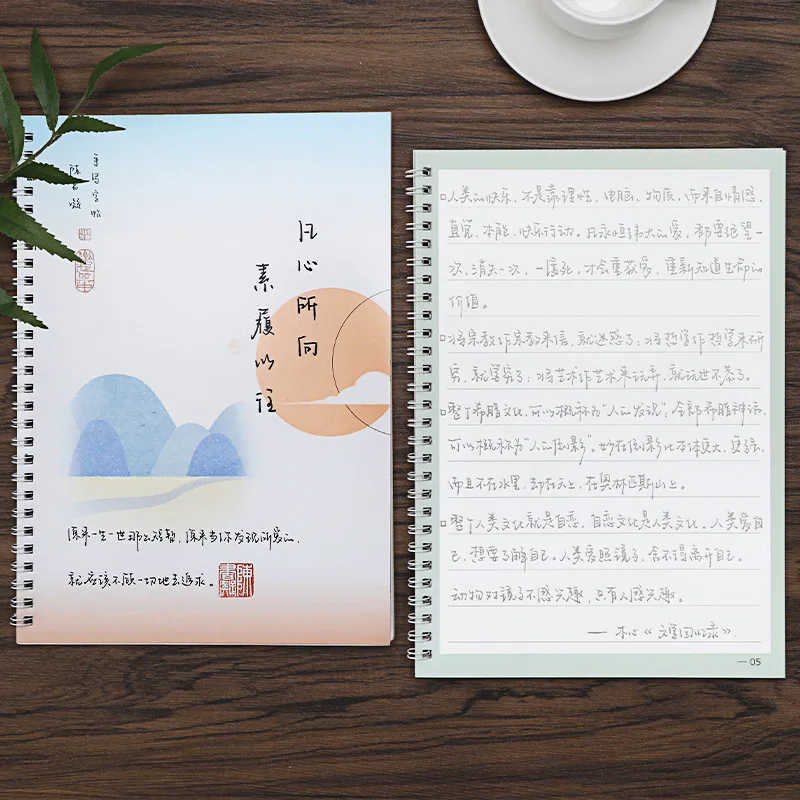 手写字帖
凡心所向
素履以往
原来一生一世那么短暂,原来当你发现所爱的,
就应该不顾一切地去追求。
□人类的快乐,不是靠理性、电脑、物质,而来自情感、
直觉、本能、快乐行动。凡永恒伟大的爱,都要绝望一
次,消失一次,一度死,才会重获爱,重新知道生命的
价值。
□将宗教作宗教来信,就迷惑了;将哲学作哲学来研
究,就学究了;将艺术作艺术来玩弄,就玩世不恭了。
□整个希腊文化,可以概称为“人的发现”;全部希腊神话,
可以概称为“人的倒影”。妙在倒影比本体更大,更强,
而且不在水里,却在天上,在奥林匹斯山上。
□整个人类文化就是自恋,自恋文化是人类文化。人类爱自
己,想要了解自己。人类爱照镜子,舍不得离开自己。
动物对镜子不感兴趣,只有人感兴趣。
— 木心《文学回忆录》.
— 05